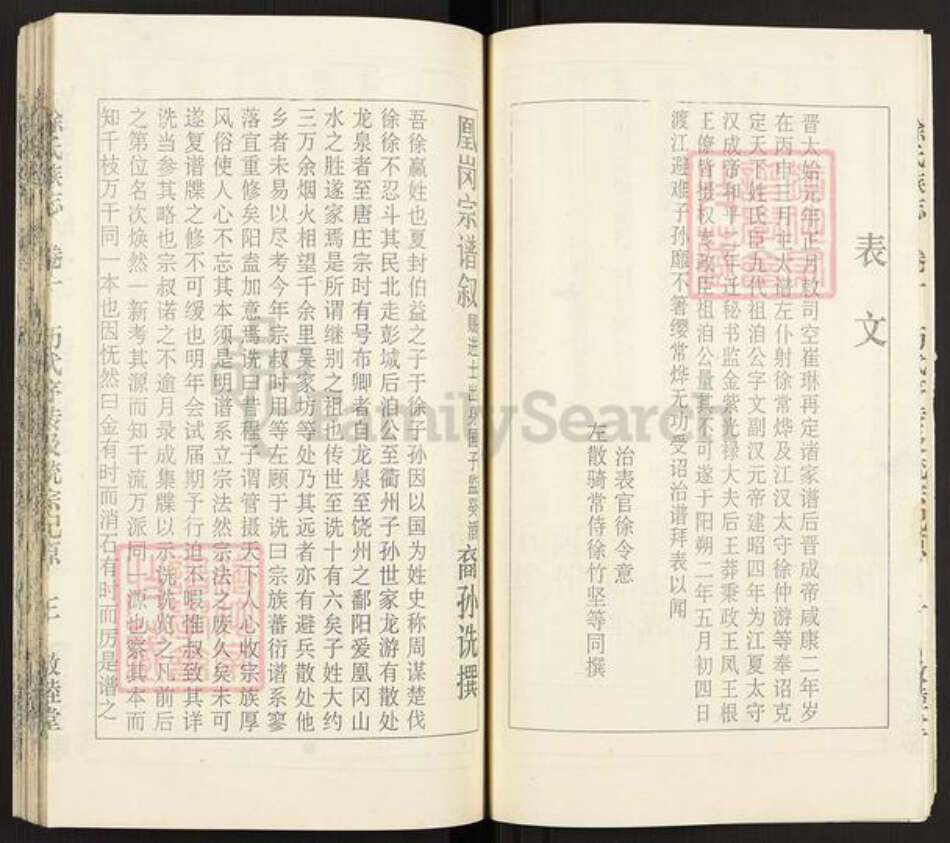 表文
晋太始元年正月敕司空崔琳再定诸家谱后晋成帝咸康二年岁
在丙申三月 大 左仆射徐常烨及江汉太守徐仲游等奉诏克
定天下姓氏臣九代祖洎公字文副汉元帝建昭四年为江夏太守
汉成帝和平二年迁秘书监金紫光禄大夫后王莽秉政王凤王根
王 皆摄权 政臣祖洎公量其不可遂于阳朔二年五月初四日
渡江避难子孙靡不著缨常烨无功受诏治谱拜表以闻
治表官徐令意
左散骑常侍徐竹坚等同撰
凰岗宗谱叙 赐进士出身国子监 裔孙诜撰
吾徐嬴姓也夏封伯益之子于徐子孙因以国为姓史称周谋楚伐
徐徐不忍斗其民北走彭城后洎公至衢州子孙世家龙游有散处
龙泉者至唐庄宗时有号布卿者自龙泉至饶州之鄱阳爱凰冈山
水之胜遂家焉是所谓继别之祖也传世至诜十有六矣子姓大约
三万余烟火相望千余里吴家坊等处乃其远者亦有避兵散处他
乡者未易以尽考今年宗叔时用等左顾于诜曰宗族蕃衍谱系寥
落宜重修矣阳盍加意焉诜曰昔程子谓管摄天下人心收宗族厚
风俗使人心不忘其本须是明谱系立宗法然宗法之废久矣未可
遂复谱牒之修不可缓也明年会试届期予行迫不暇惟叔致其详
诜当参其略也宗叔诺之不逾月录成集牒以示诜诜览之凡前后
之第位名次焕然一新考其源而知千流万派同一源也察其本而
知千枝万干同一本也因怃然曰金有时而消石有时而厉是谱之
徐氏族志 卷一 历代序转及统宗纪原 三 敦睦堂
FamilySearch